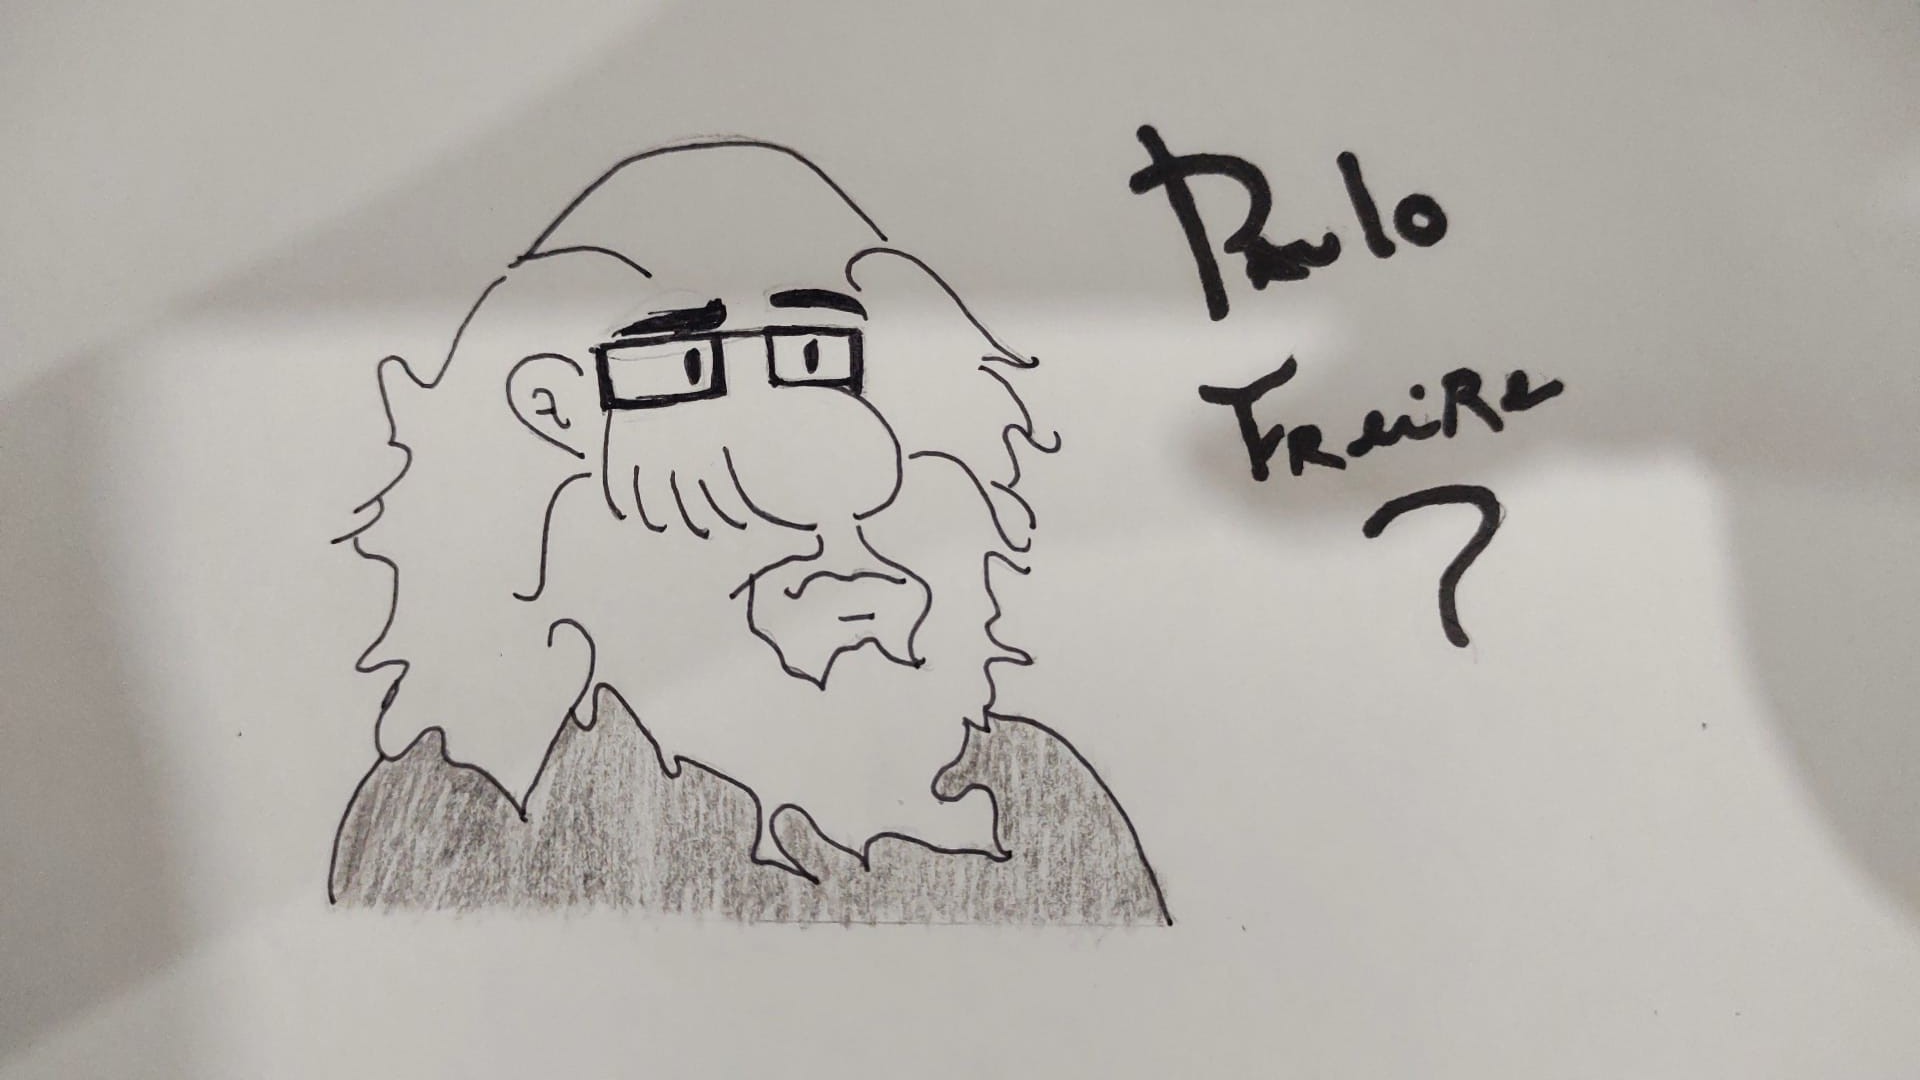 Paulo
Freire
?